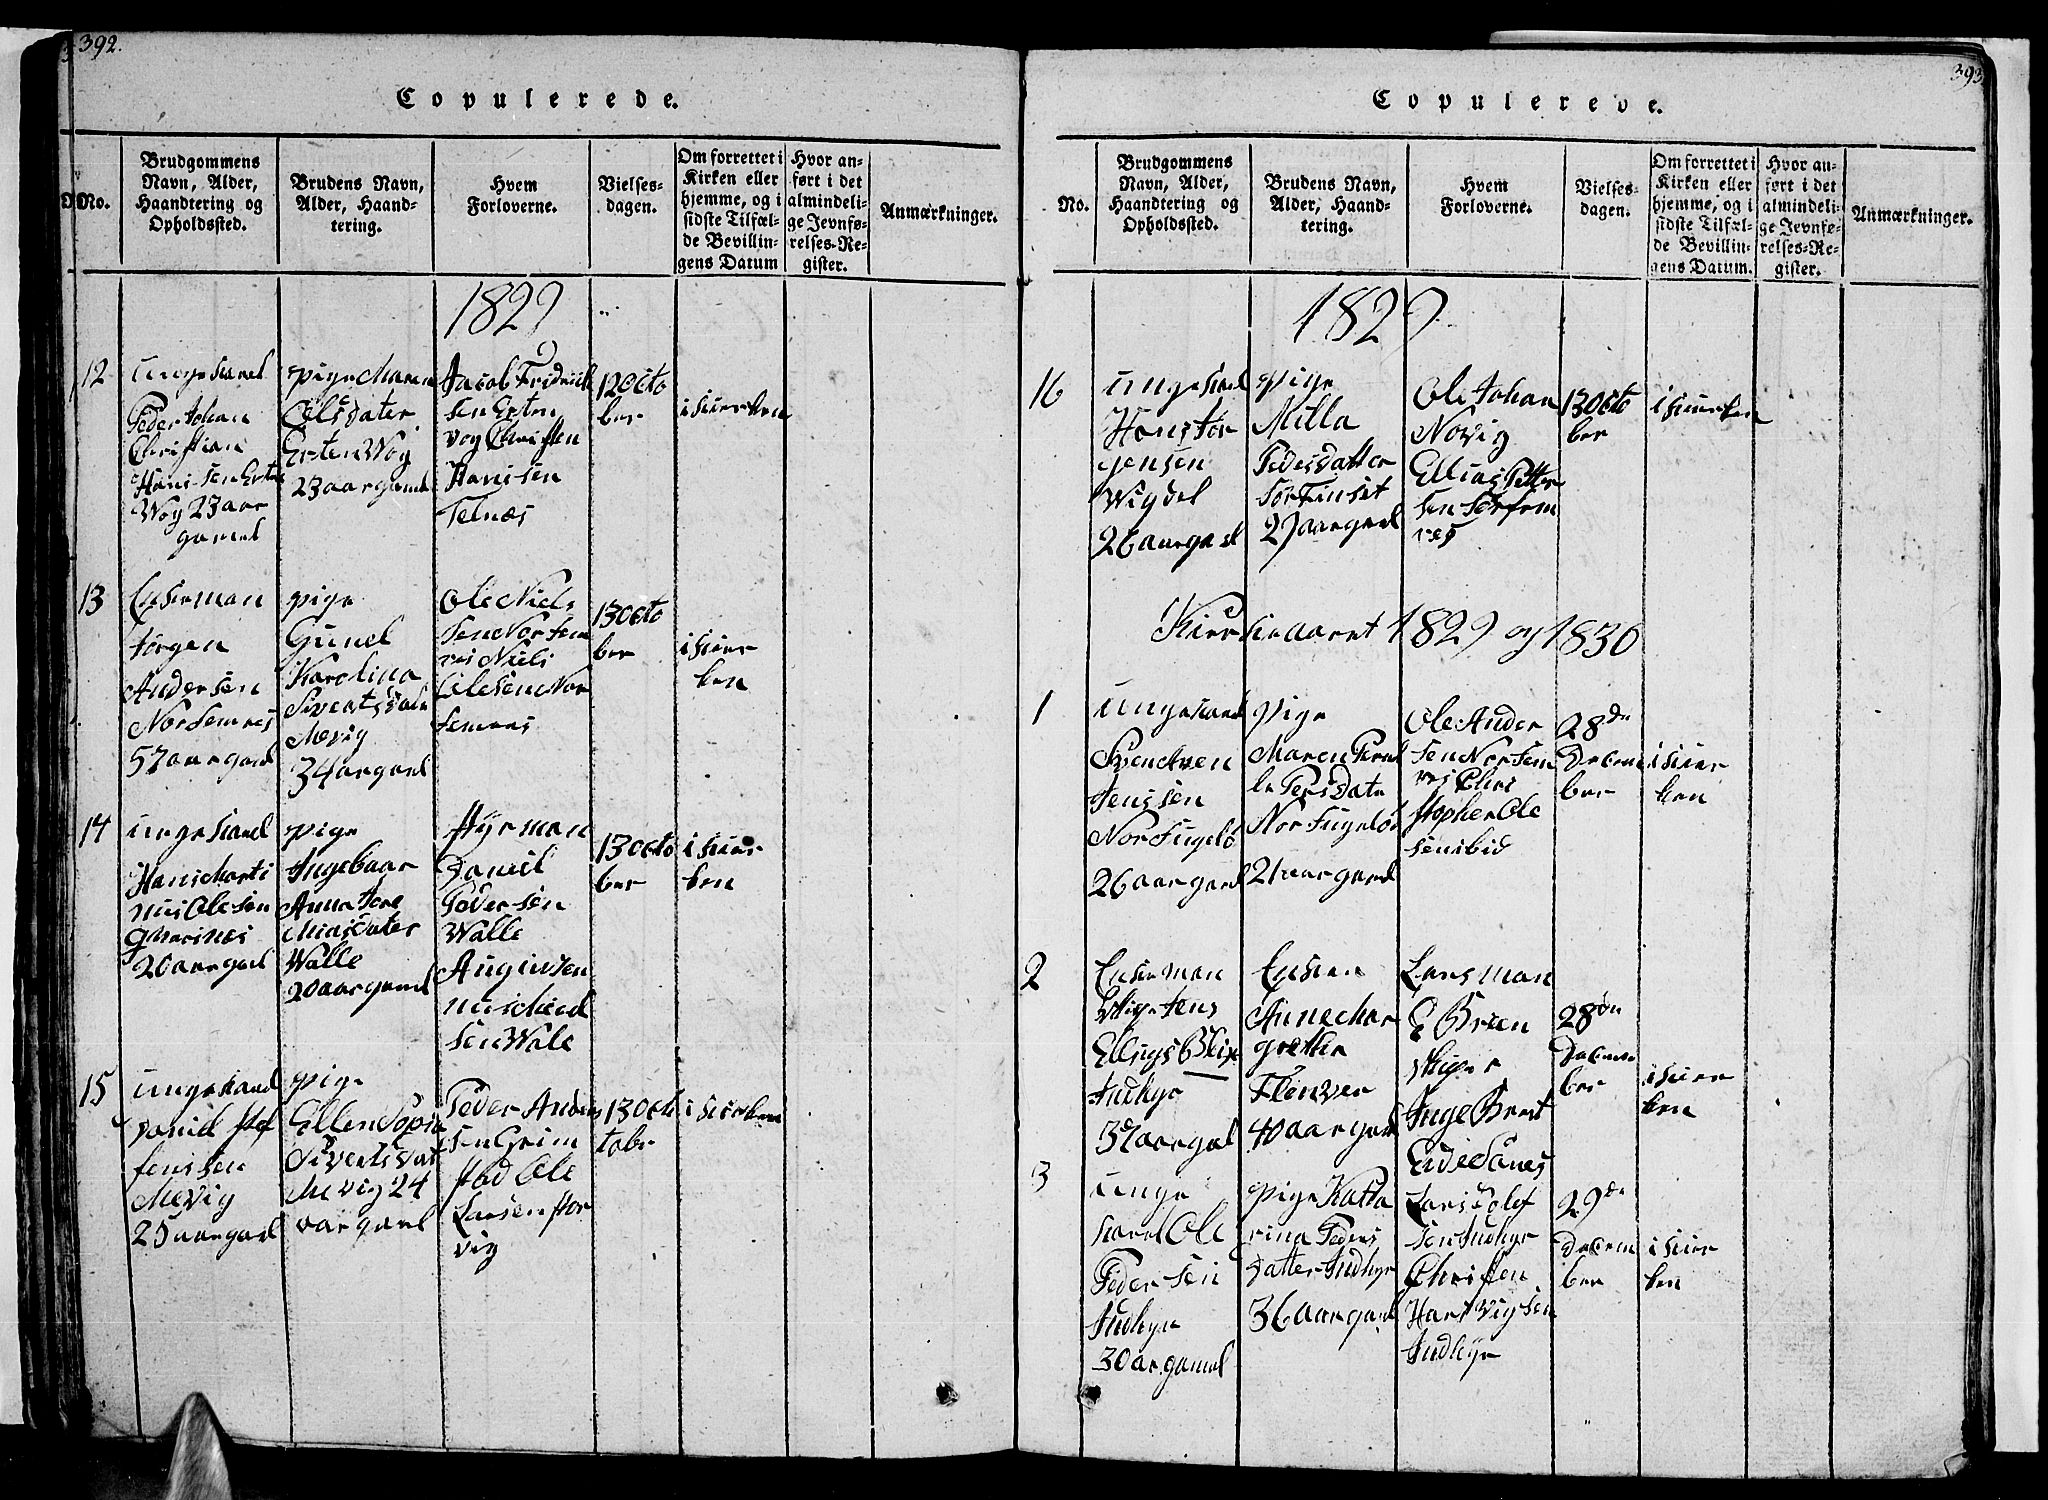 392.
Copulerede.
No.
Brudgommens
Navn, Alder,
Haandtering og
Opholdssted.
Brudens Navn,
Alder, Haand-
tering.
Hvem
Forloverne.
Vielses-
dagen.
Om forrettet i
Kirken eller
hjemme, og i
sidste Tilfæl-
de Bevillin-
gens Datum
Hvor an-
ført i det
almindeli-
ge Jevnfø-
relses-Re-
gister.
Anmærkninger.
1829
12
ungekarl
Peder Johan
Christian
Hansen Erten
Wog 23 aar
gamel
pige Maren
Olsdater
Erten Wog
23 aar gamel
Jacob Fridrick
sen Erten
vog Christen
Hansen
Telnæs
12 octo
ber
i kierken
13
Enkeman
Jørgen
Andersen
Norfemnes
57 aar gaml
pige
Gunel
Karolina
Sivertsdatr
Mevig
34 aar gaml
Ole Niels
sen Nor fem
nes Niels
Olesen Nor
femnes
13 octo
ber
i kier
ken
14
ungekarl
Hans Marti
nus Olesen
20 aar gaml
pige
Ingebaar
Anna Jere
miasdater
Walle
20 aar gaml
Styrman
Daniel
Pedersen
Walle
Augustin
sen Wale
13 octo
ber
i kier
ken
15
ungekarl
Daniel
Jenssen
Mevig
25 aar gaml
pige
Ellen Sopia
Sivertsdat
Mevig 24
aar gaml
Peder Anders
sen Grim
stad Ole
Larsen Stor
vig
13 octo
tober
i kierken
393
Copulerede.
No.
Brudgommens
Navn, Alder,
Haandtering og
Opholdssted.
Brudens Navn,
Alder, Haand-
tering.
Hvem
Forloverne.
Vielses-
dagen.
Om forrettet i
Kirken eller
hjemme, og i
sidste Tilfæl-
de Bevillin-
gens Datum.
Hvor an-
ført i det
almindeli-
ge Jevnfø-
relses-Re-
gister.
Anmærkninger.
1829
16
ungekarl
Hans Jør
gensen
Wigdel
26 aar gaml
pige
Milla
Pedersdatter
Sørfinset
29 aar gaml
Ole Johan
Novig
Ellias Petter
sen Sørfem
nes
13 octo
ber
i kierken
Kierkeaaret 1829 og 1830
1
ungekarl
Jenssen
Nor Fugelø
26 aar gaml
pige
Maren Pernel
le Persdater
Nor Fugelø
21 aar gaml
Ole Ander
sen Nor fem
nes Chri
stopher Ole
sen
28de
Decem
ber
i kier
ken
2
Enkeman
Skiper Jens
Ellings Blix
Indhyr
37 aar gaml
Enken
Anne Mar
grethe
40 aar gaml
Lensman
E Breen
Skiper
Inge Brest
28de
Decem
ber
i kier
ken
3
unge
karl Ole
Pedersen
Indhyr
30 aar gamel
pige Katta
rina Peders
datter Indhyr
36 aar gaml
Lars Olef
sen Indhyr
Christen
Hartvigsen
Indhyr
29de
Decem
ber
i kier
ken